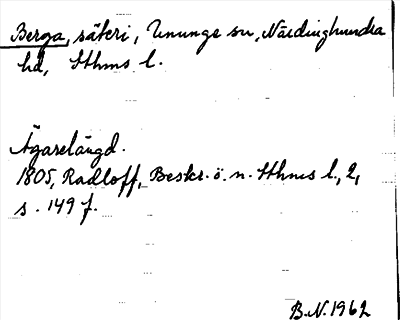 Berga, säteri, Ununge sn, Närdinghundra
hd, Sthms l.
Ägarelängd.
1805, Radloff, Beskr. ö. n. Sthms l, 2,
s. 149 f.
B.N. 1962